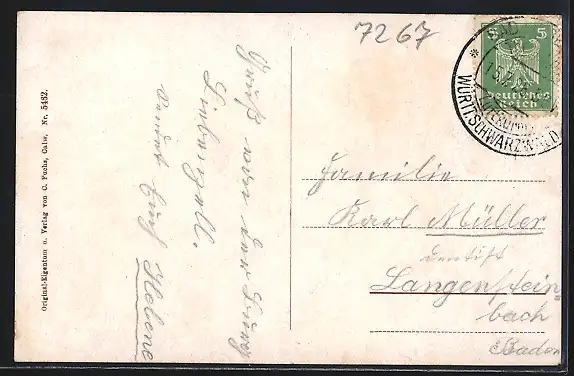 7267
5 5
Deutsches
Reich
BAD
WÜRTT. SCHWARZWALD
Original-Eigentum u. Verlag von C. Fuchs, Calw. Nr. 5482.
Gruß von der Burg
Liebenzell.
sendet Euch Helene
Familie
Karl Müller
Dentist
Langenstein
bach
Baden